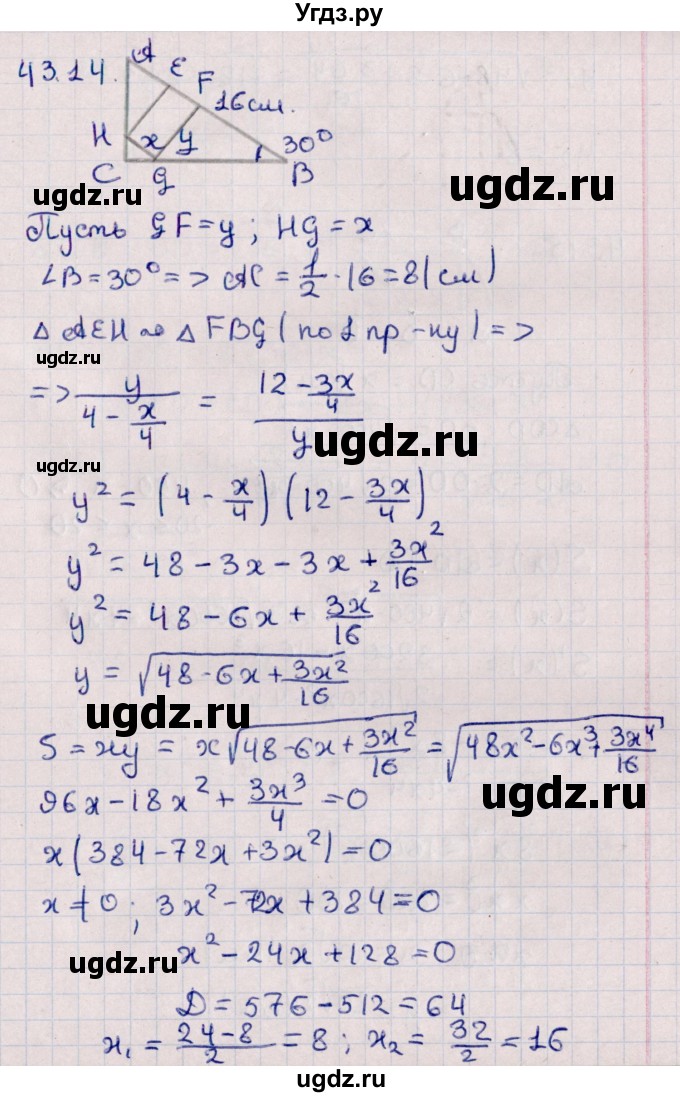 Угдз.ру
43.14.
A
E
F
16см.
H
x
y
30°
C
g
B
ugdz.ru
ugdz.ru
Пусть GF=y ; HG=x
∠B=30°=> AC = 1/2 · 16=8(см)
△ AEH ∾ △ FBG (по 1 пр-ку) =>
=> y/(4 - x/4) = (12 - 3x/4)/y
ugdz.ru
ugdz.ru
y² = (4 - x/4)(12 - 3x/4)
y² = 48 - 3x - 3x + 3x²/16
ugdz.ru
y² = 48 - 6x + 3x²/16
y = √(48-6x+3x²/16)
ugdz.ru
S = xy = x√(48-6x+3x²/16) = √(48x²-6x³+3x⁴/16)
ugdz.ru
96x-18x²+3x³/4=0
x(384-72x+3x²)=0
x≠0; 3x²-72x+384=0
ugdz.ru
ugdz.ru
x²-24x+128=0
D=576-512=64
x₁ = (24-8)/2 = 8; x₂ = 32/2 = 16
ugdz.ru